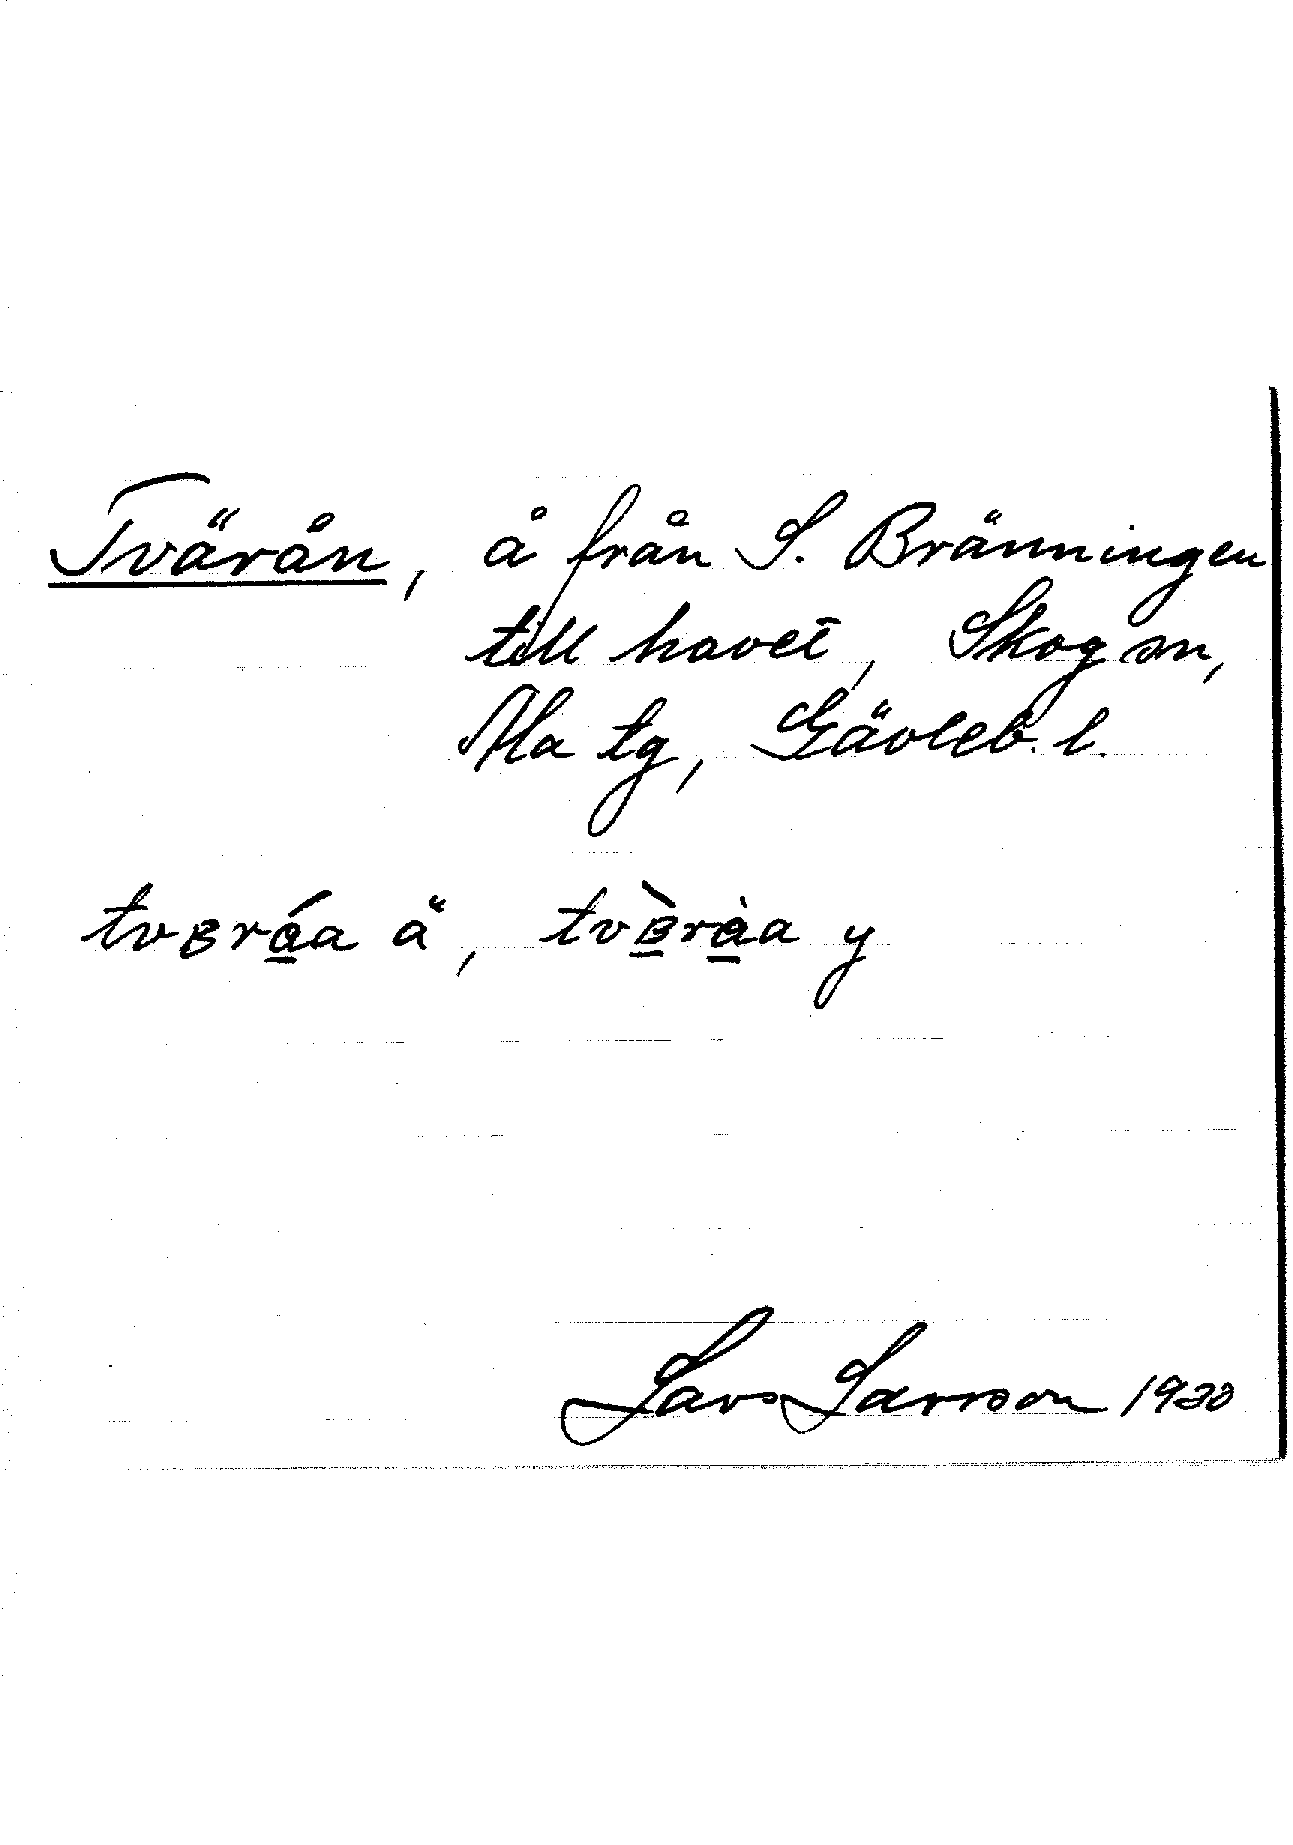 Tvärån, å från S. Bränningen
till havet, Skog sn,
Ala tg, Gävleb. l.
tvɛrá̱a ä, tvɛ̱̀rà̱a y
Lars Larsson 1930